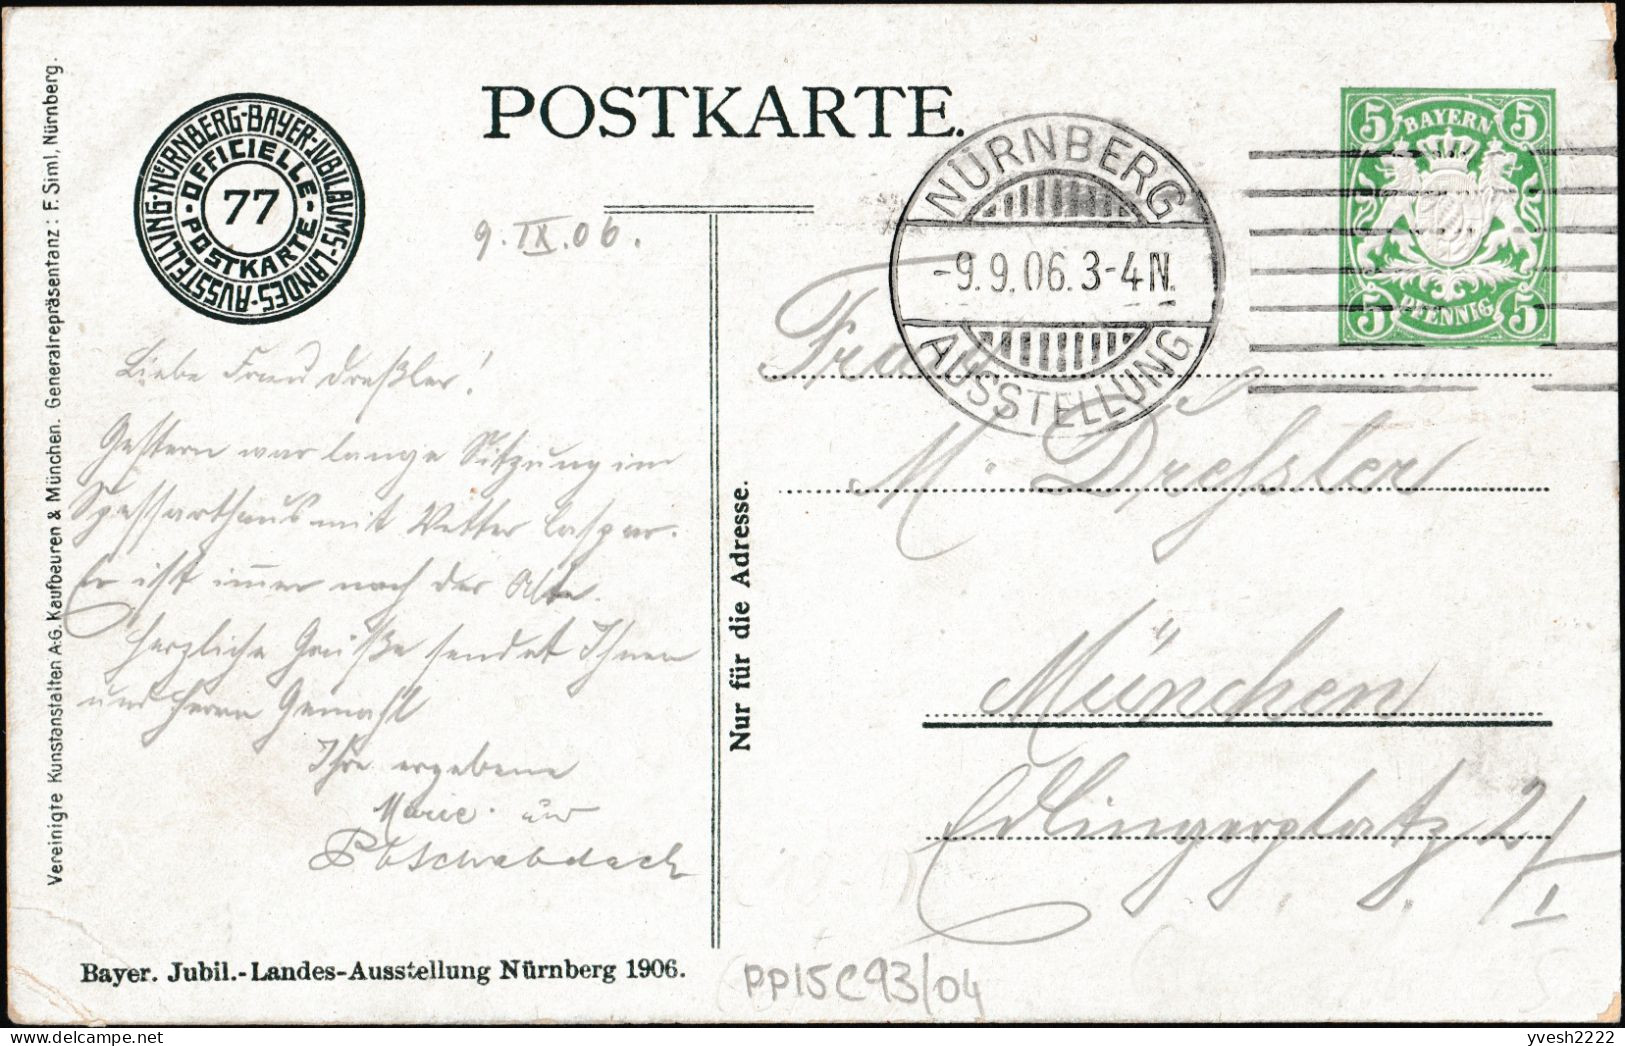 POSTKARTE.
NÜRNBERG-BAYER-JUBILÄUMS-LANDES-AUSSTELLUNG-
OFFICIELLE-POSTKARTE-
77
NÜRNBERG
-9.9.06.3-4N.
AUSSTELLUNG
5 BAYERN 5
5 PFENNIG 5
Vereinigte Kunstanstalten A:G. Kaufbeuren & München. Generalrepräsentanz: F. Siml, Nürnberg.
9. IX. 06.
Liebe Frau Dreßler!
Gestern war lange Sitzung im
Spessarthaus mit Vetter Caspar.
Er ist immer noch der Alte.
Herzliche Grüße sendet Ihnen
und Herrn Gemahl
Ihre ergebene
Marie
Bayer. Jubil.-Landes-Ausstellung Nürnberg 1906.
Nur für die Adresse.
Frau
M. Dressler
München
Edlingerplatz 2/I
PP15C93/04
yvesh2222